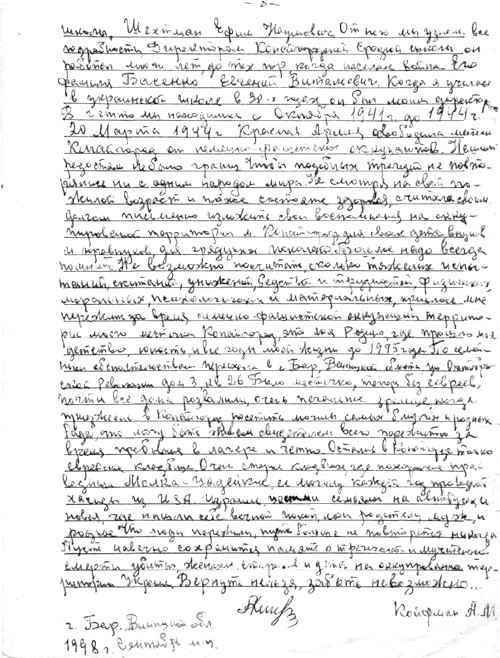 -5-
школы, Шехтман Ефим Наумович От него мы узнали все
подробности Директором Копайгородской Средней школы он
работал много лет, до тех пор когда началась война Его
фамилия Баченко Евгений Витальевич. Когда я училась
в украинской школе в 30-х годах, он был моим директором
В гетто мы находились с Октября 1941 г. до 1944 г.
20 Марта 1944 г Красная Армия освободила местечко
Копайгород от немецко фашистских оккупантов. Нашей
радости не было границ Чтобы подобных трагедий не повто-
рялись ни с одним народом мира. Не смотря на свой по-
жилой возраст и плохое состояние здоровья, считала своим
долгом письменно изложить свои воспоминания на окку-
пированной территории м. Копайгород для своих детей, внуков
и правнуков, для грядущих поколений надо всегда
помнить. Не возможно посчитать сколько тяжелых испы-
таний, скитаний, унижений, бедствий и трудностей, физических
моральных, психологических и материальных, пришлось мне
пережить за время немецко-фашистской оккупации террито-
рии моего местечка Копайгород, это моя Родина, где прошло мое
детство, юность и все годы моей жизни до 1995 года. По семей-
ным обстоятельствам переехала в г. Бар, Винницкой области, ул. Октябрь-
ской Революции дом 3, кв 26 Было местечко, теперь без евреев,
почти все дома развалили, очень печальное зрелище, когда
приезжаем в Копайгород посетить могилы самых близких и родных
Рада, что могу быть живым свидетелем всего пережитого за
время пребывания в лагере и гетто. Остались в Копайгороде только
еврейские кладбища. Очень старое кладбище где похоронены пра-
ведники, к могилам каждый год приезжают
хасиды из США, Израиля, семьями на автобусах и
новое, где нашли себе вечный покой, мои родители, муж, и
родные Что люди пережили, пусть больше не повторится никогда
Пусть навечно сохранится память о трагической и мученической
смерти убитых, женщин, стариков и детей на оккупированной тер-
ритории Украины, Вернуть нельзя, забыть невозможно...
Койфман А. М.
г. Бар. Винницкой обл.
1998 г. Сентябрь м-ц